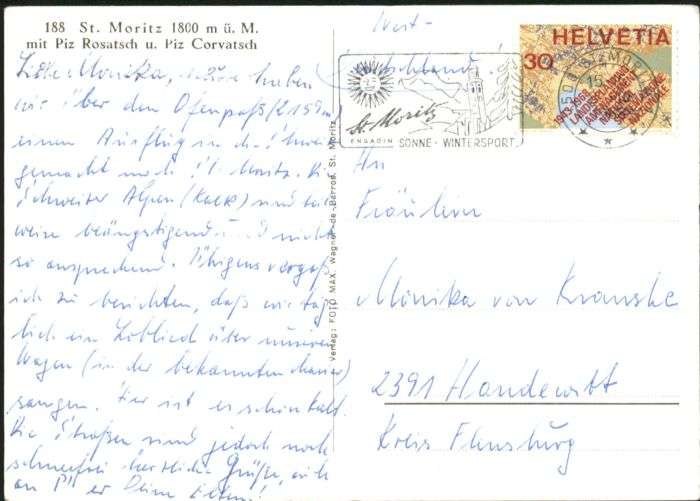 188 St. Moritz 1800 m ü. M.
mit Piz Rosatsch u. Piz Corvatsch
Liebe Monika, haben
wir über den Ofenpaß (2159m)
einen Ausflug in die Schweiz
gemacht nach St. Moritz. Die
Schweizer Alpen (Kalk) sind
beängstigend und nicht
so ansprechend. Übrigens vergaß
ich zu berichten, daß wir täg
lich ein Loblied über unseren
Wagen (in der bekannten
sangen. Hier ist es schon kalt.
Die Straßen sind jedoch noch
schneefrei herzliche Grüße, auch
an Deine Eltern!
Verlag: FOTO MAX, Wagner-de-Barros, St. Moritz
West-
Deutschland!
St. Moritz
ENGADIN SONNE + WINTERSPORT
HELVETIA
30
1913-1968
An
Fräulein
Monika von Kranske
2391 Handewitt
Kreis Flensburg